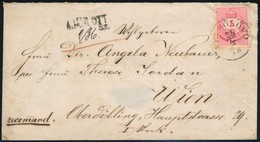 AJÁNLOTT
Wohlgeboren
Frau Dr. Angela Neubauer
per Adr. Frau Therese Jordan
Wien
recomand. Oberdöbling, Hauptstrasse 29
I. Stock.